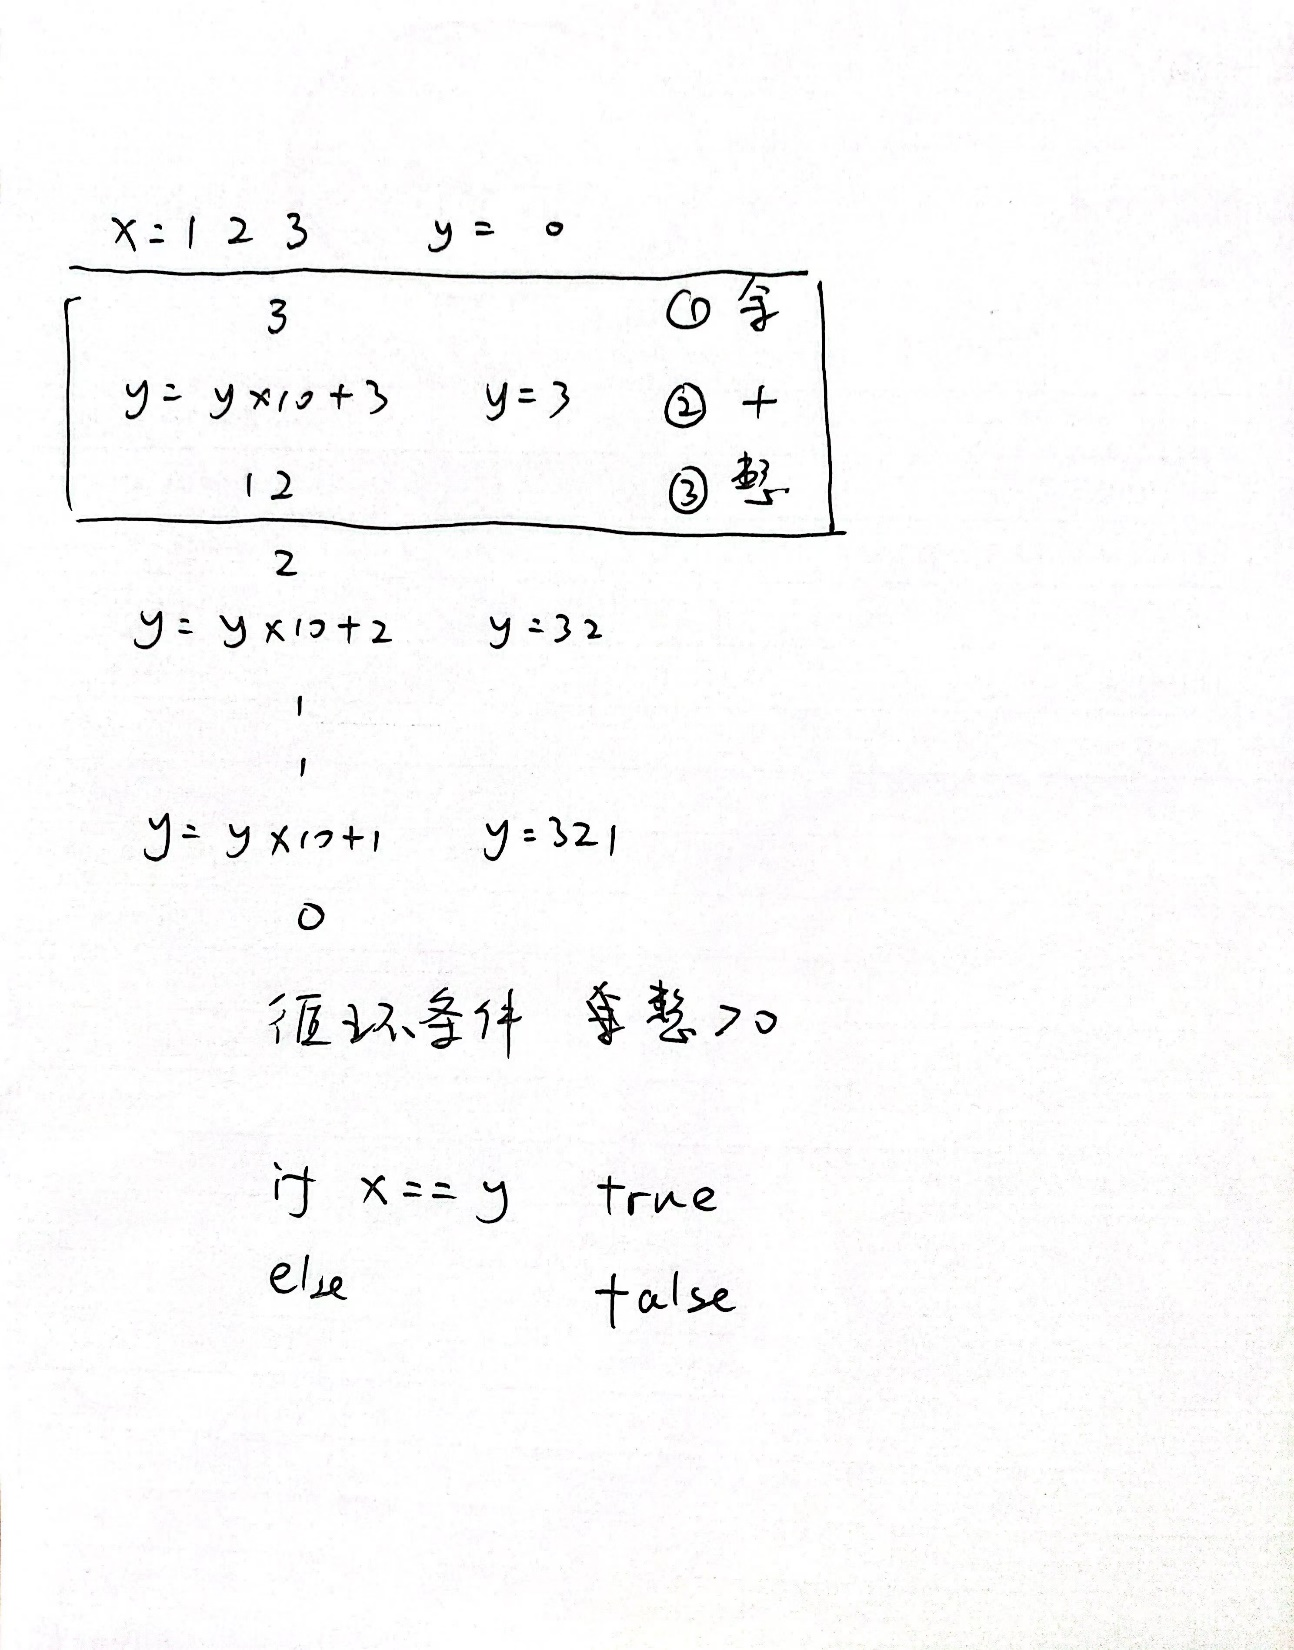 x=123 y=0
3 ① 余
y=y×10+3 y=3 ② +
12 ③ 整
2
y=y×10+2 y=32
1
1
y=y×10+1 y=321
0
循环条件 整>0
if x==y true
else false